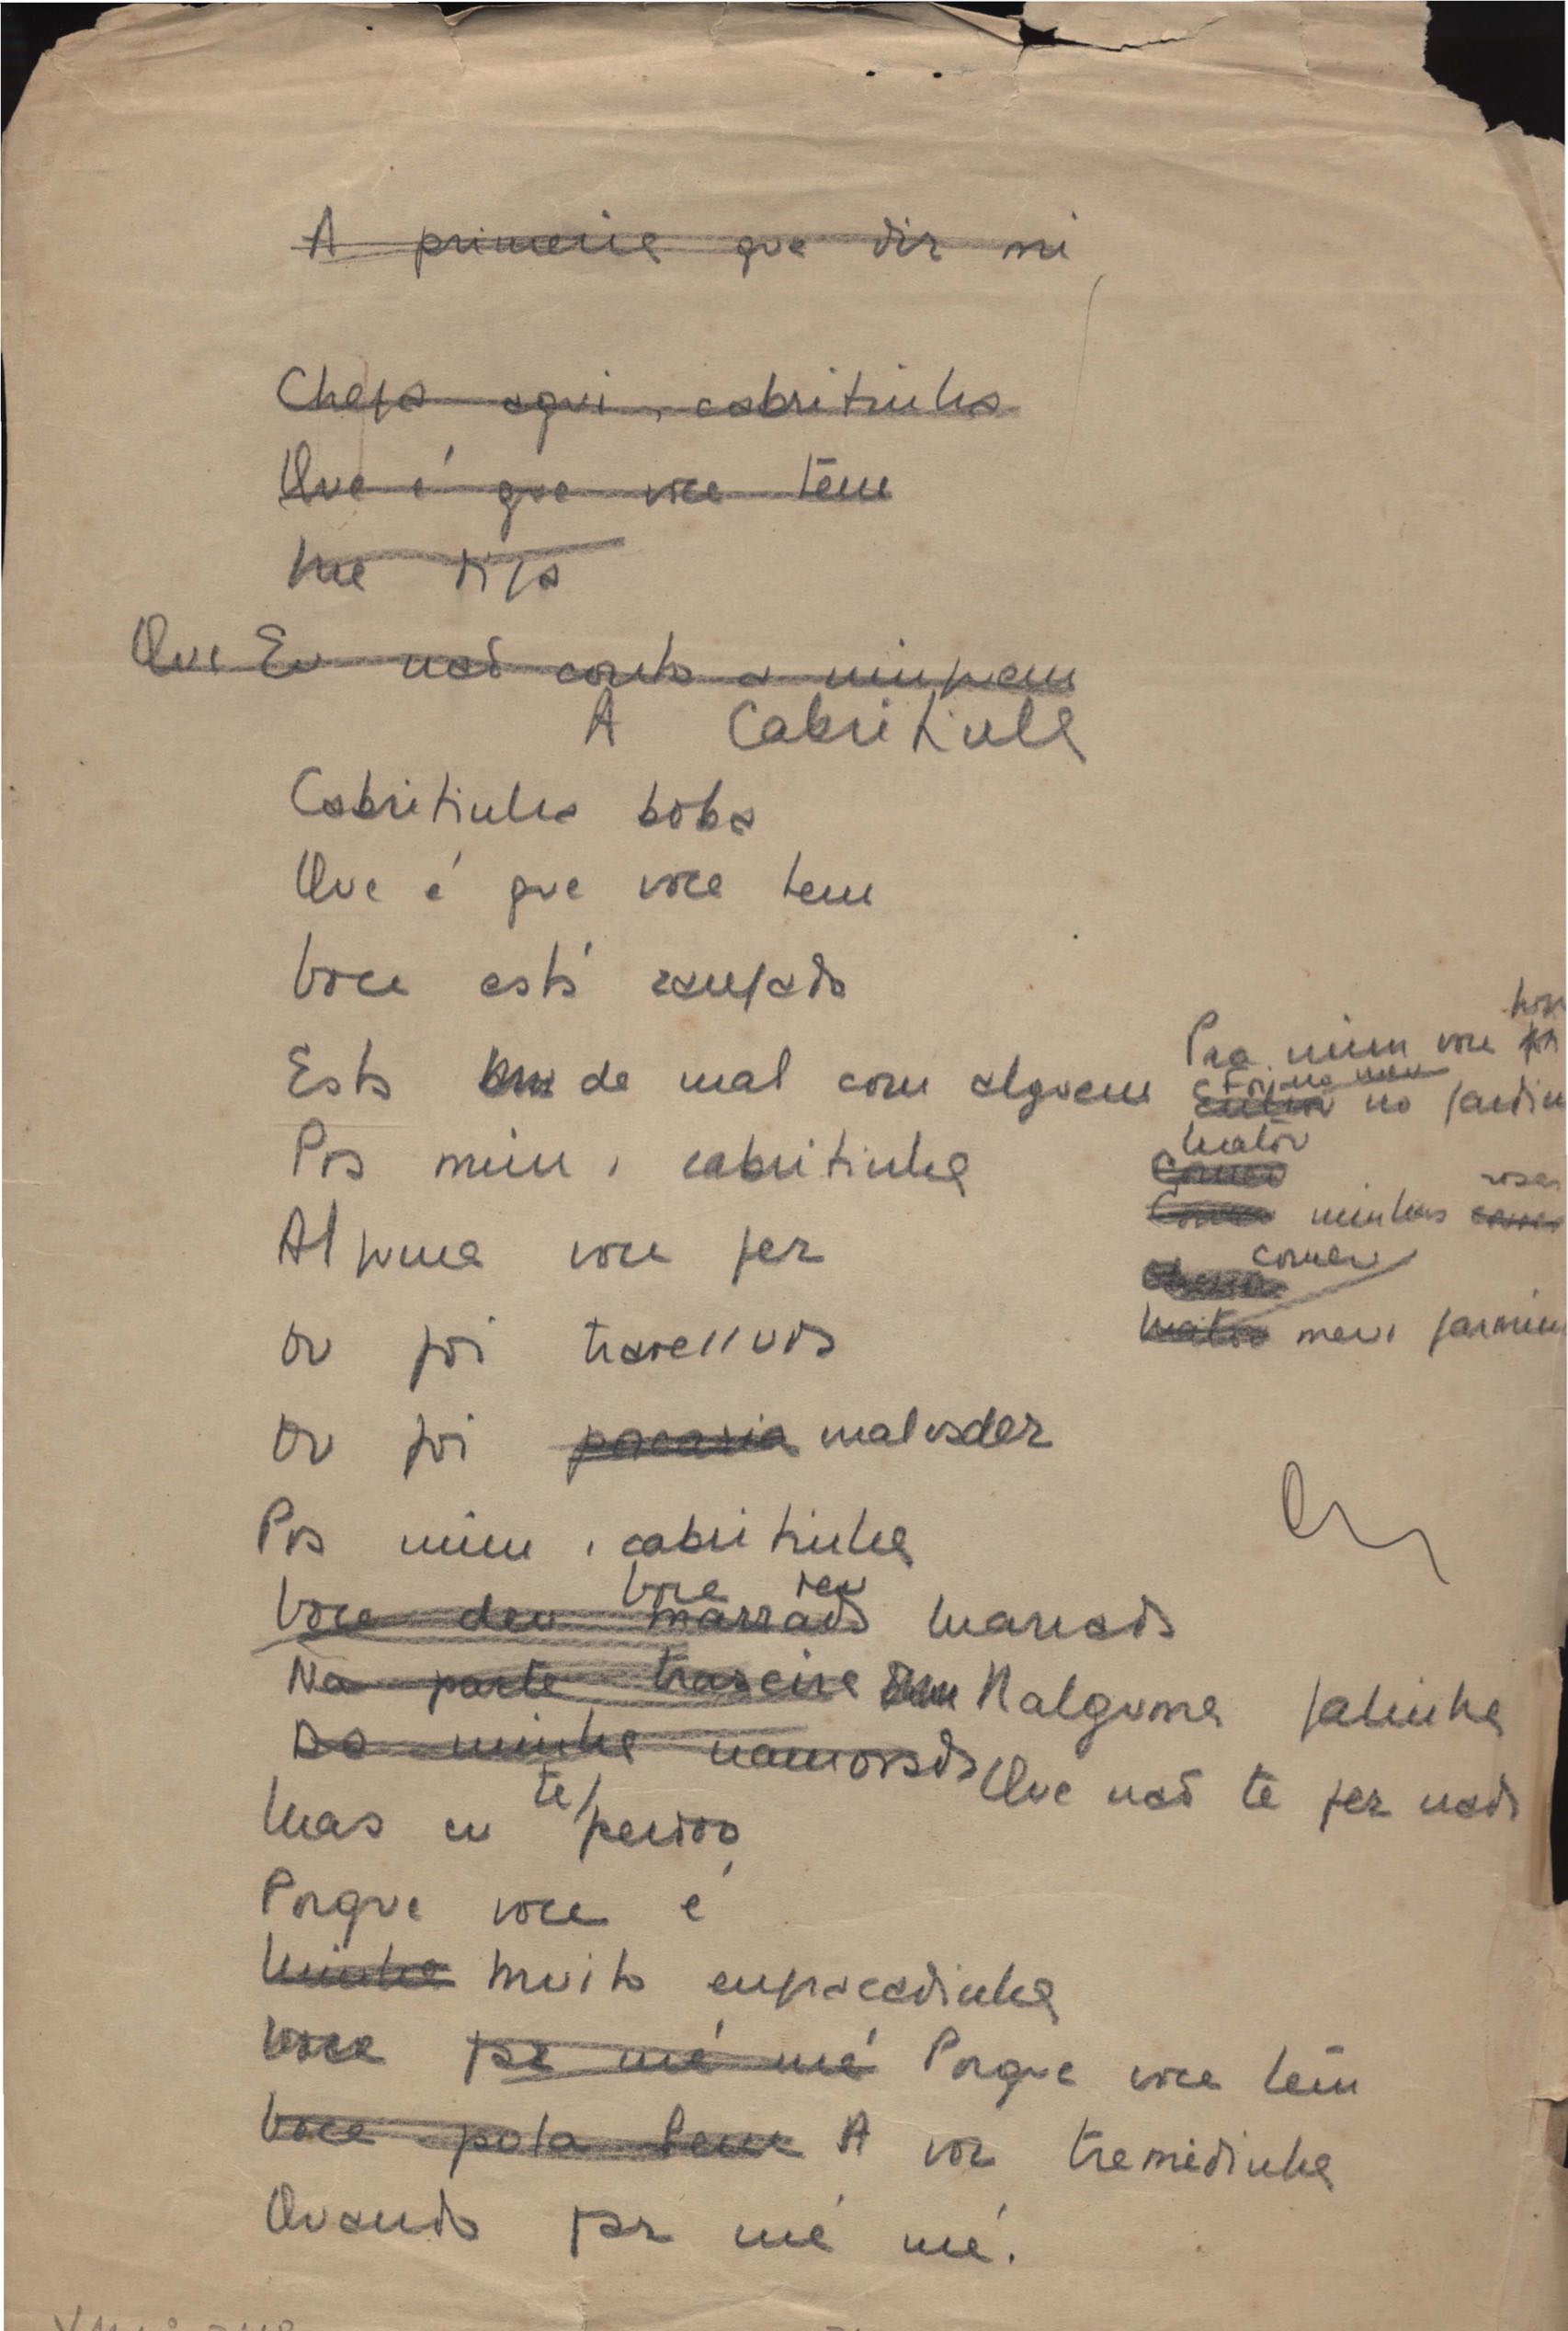 A primeira que diz mi
Chega aqui, cabritinha
Que é que voce tem
Me diga
Que Eu não conto a ninguem
A Cabritinha
Cabritinha boba
Que é que voce tem
Voce está zangada
Está de mal com alguem
Pra mim, cabritinha
Alguma voce fez
Ou foi travessura
Ou foi porcaria malvadez
Pra mim, cabritinha
Voce deu
Voce deu marrada Marrada
Na parte traseira Nalguma galinha
Da minha namorada Que não te fez nada
te
Mas eu perdoo
Porque voce é
Minha Muito engraçadinha
Voce faz mé mé Porque voce tem
Voce pula bem A voz tremidinha
Quando faz mé mé.
Pra mim voce
Foi no meu
Entrou no jardim
Matou
Comeu
rosas
Comeu minhas
comeu
Matou meus jasmins